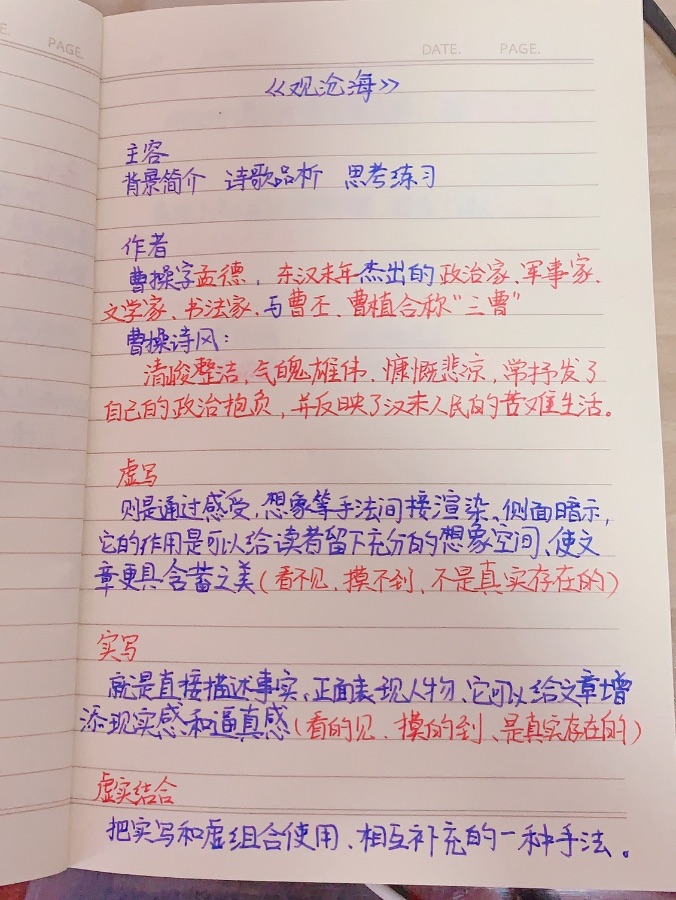 E.
PAGE.
DATE. PAGE.
《观沧海》
主容
背景简介 诗歌品析 思考练习
作者
曹操字孟德，东汉末年杰出的政治家、军事家、
文学家、书法家、与曹丕、曹植合称“三曹”
曹操诗风：
清峻整洁，气魄雄伟、慷慨悲凉，常抒发了
自己的政治抱负，并反映了汉末人民的苦难生活。
虚写
则是通过感受，想象等手法间接渲染、侧面暗示，
它的作用是可以给读者留下充分的想象空间、使文
章更具含蓄之美(看不见、摸不到、不是真实存在的)
实写
就是直接描述事实、正面表现人物、它可以给文章增
添现实感和逼真感(看的见、摸的到、是真实存在的)
虚实结合
把实写和虚组合使用、相互补充的一种手法。